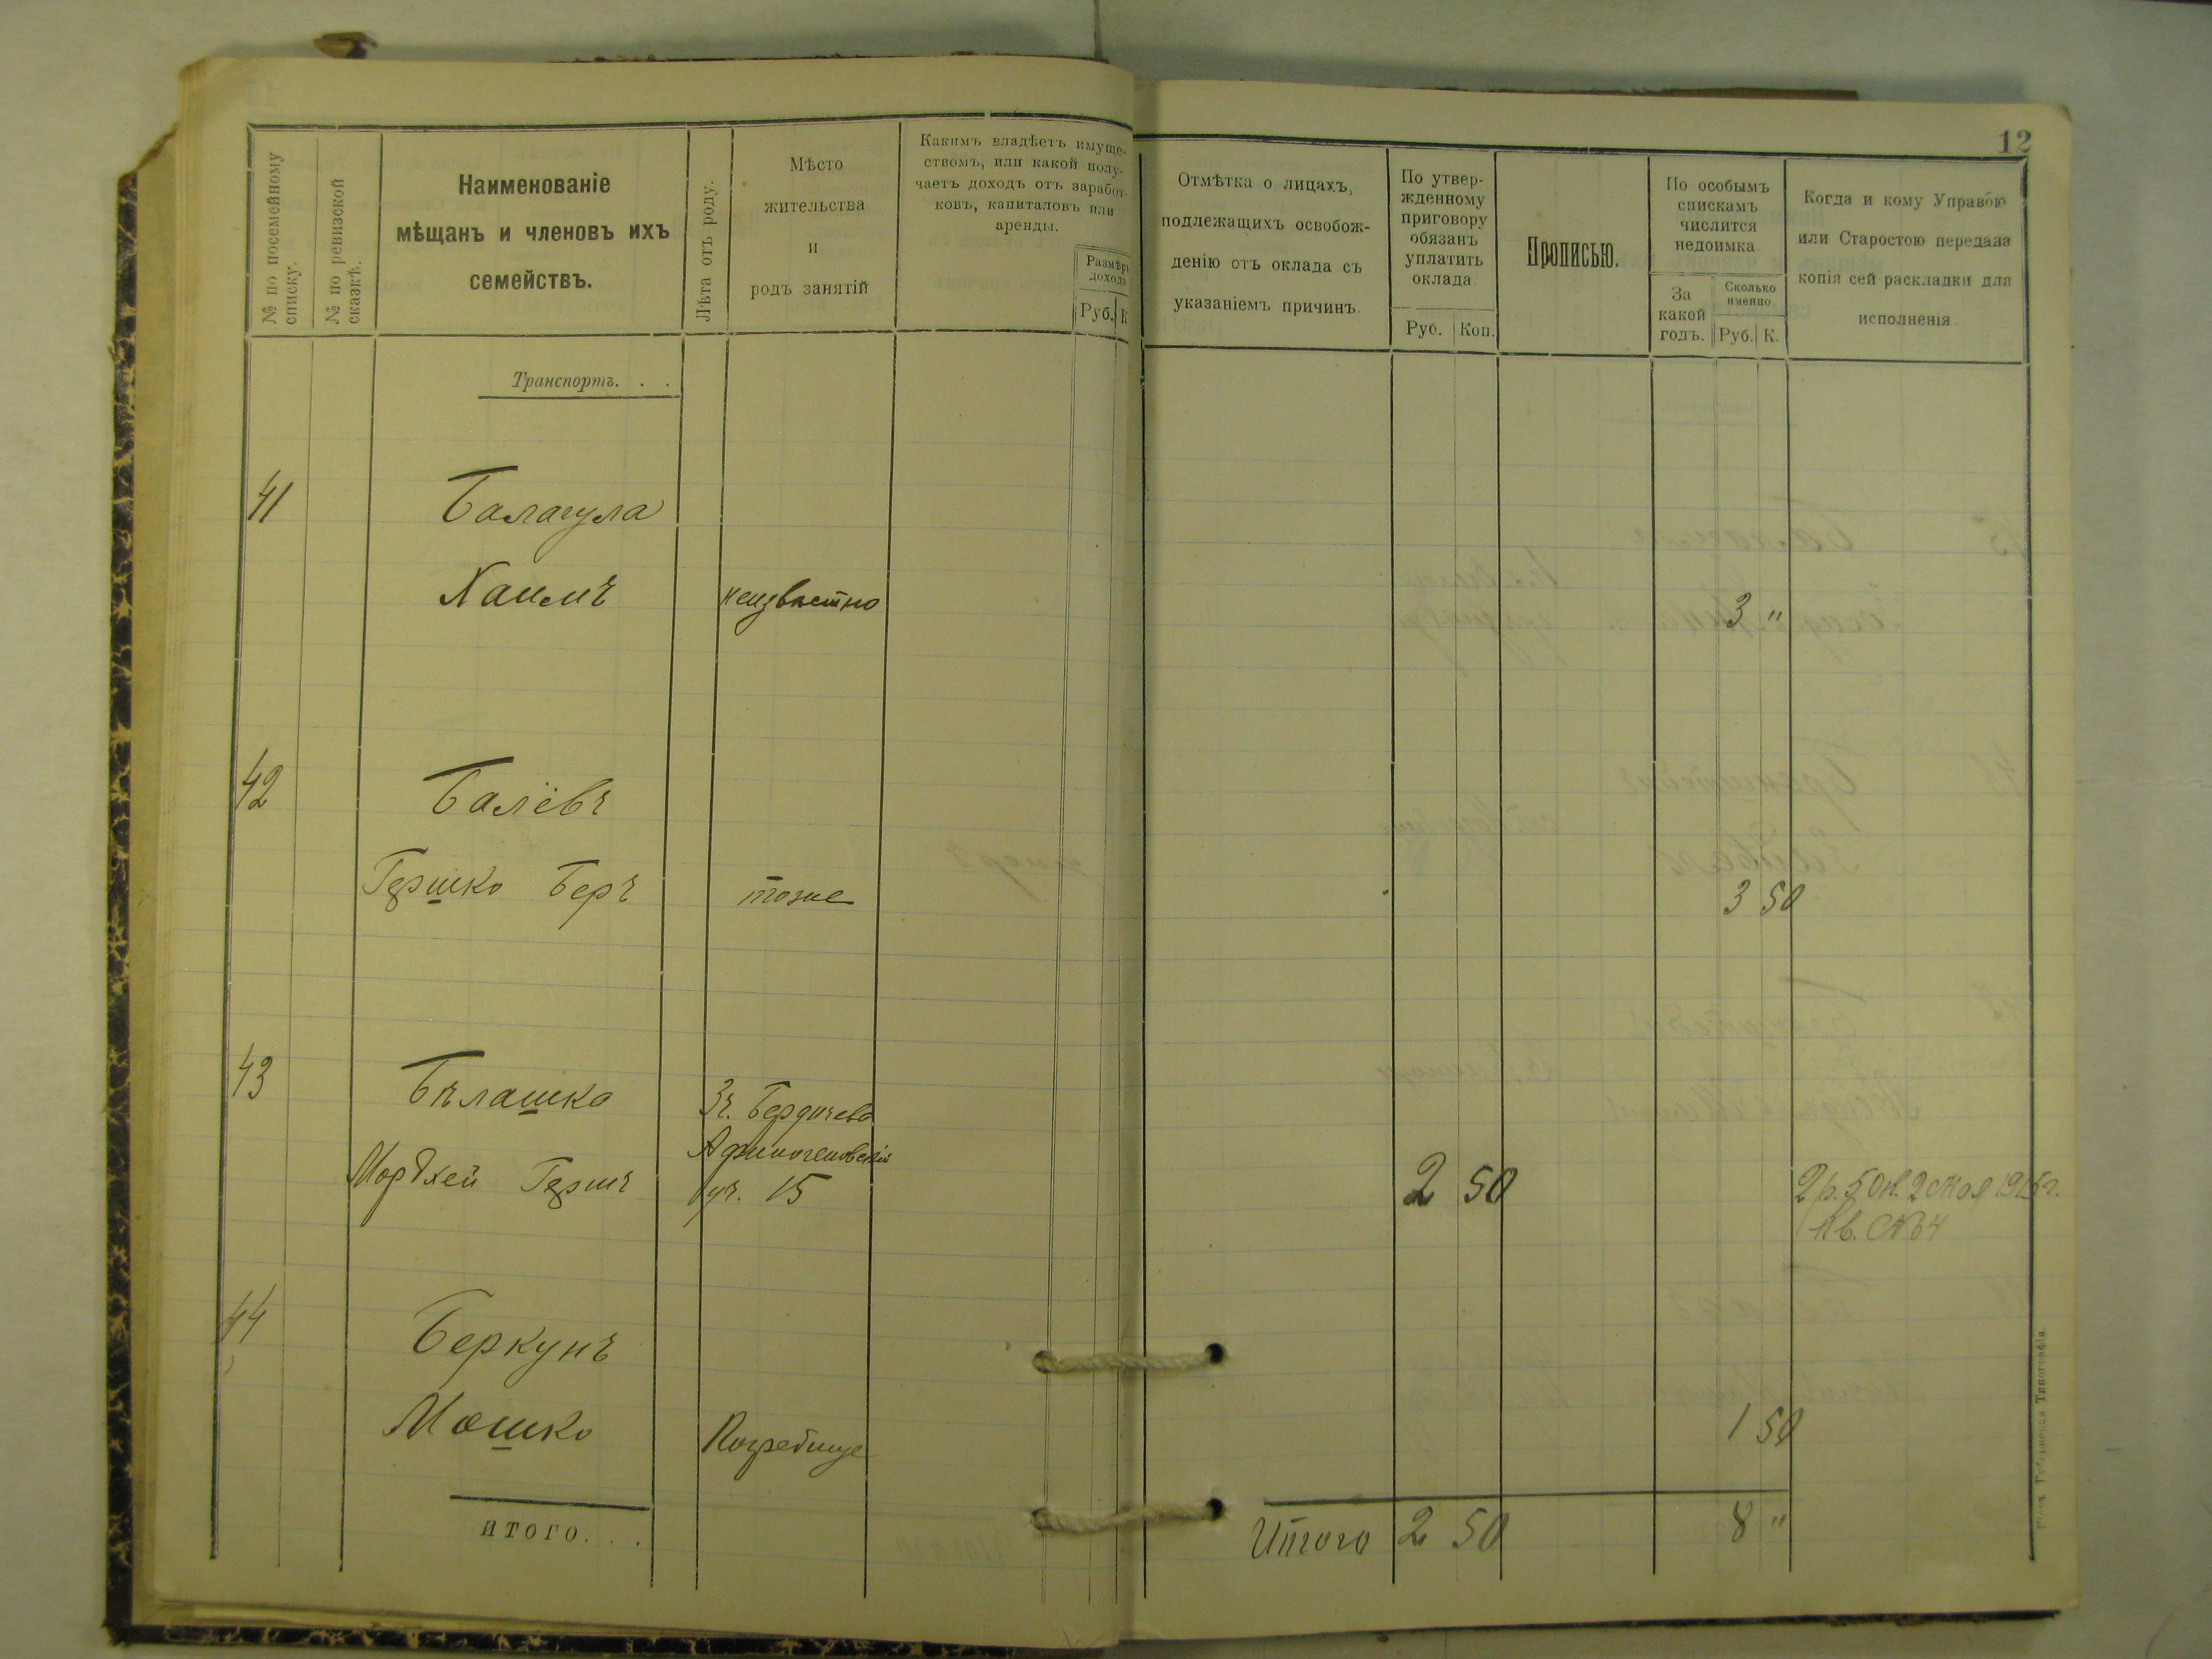 12
№ по посемейному
списку.
№ по ревизской
сказкѣ.
Наименованіе
мѣщанъ и членовъ ихъ
семействъ.
Лѣта отъ роду.
Мѣсто
жительства
и
родъ занятій
Какимъ владѣетъ имуще-
ствомъ, или какой полу-
чаетъ доходъ отъ заработ-
ковъ, капиталовъ или
аренды.
Размѣръ
дохода
Руб. К
Отмѣтка о лицахъ,
подлежащихъ освобож-
денію отъ оклада съ
указаніемъ причинъ.
По утвер-
жденному
приговору
обязанъ
уплатить
оклада
Руб. Коп.
Прописью.
По особымъ
спискамъ
числится
недоимка.
За
какой
годъ.
Сколько
именно
Руб. К.
Когда и кому Управою
или Старостою передана
копія сей раскладки для
исполненія.
Транспортъ. . .
41 Балагула
Хаимъ неизвѣстно 3 "
42 Балёвъ
Гершко Беръ тоже 3 50
43 Бѣлашка Бердичевъ
Мордхей Гершъ 15 2 50 2 р. 50 к. 2 мая 1915 г.
Кв. № 64
44 Беркунъ
Мошко Погребище 1 50
ИТОГО. . .
Итого 2 50 8 "